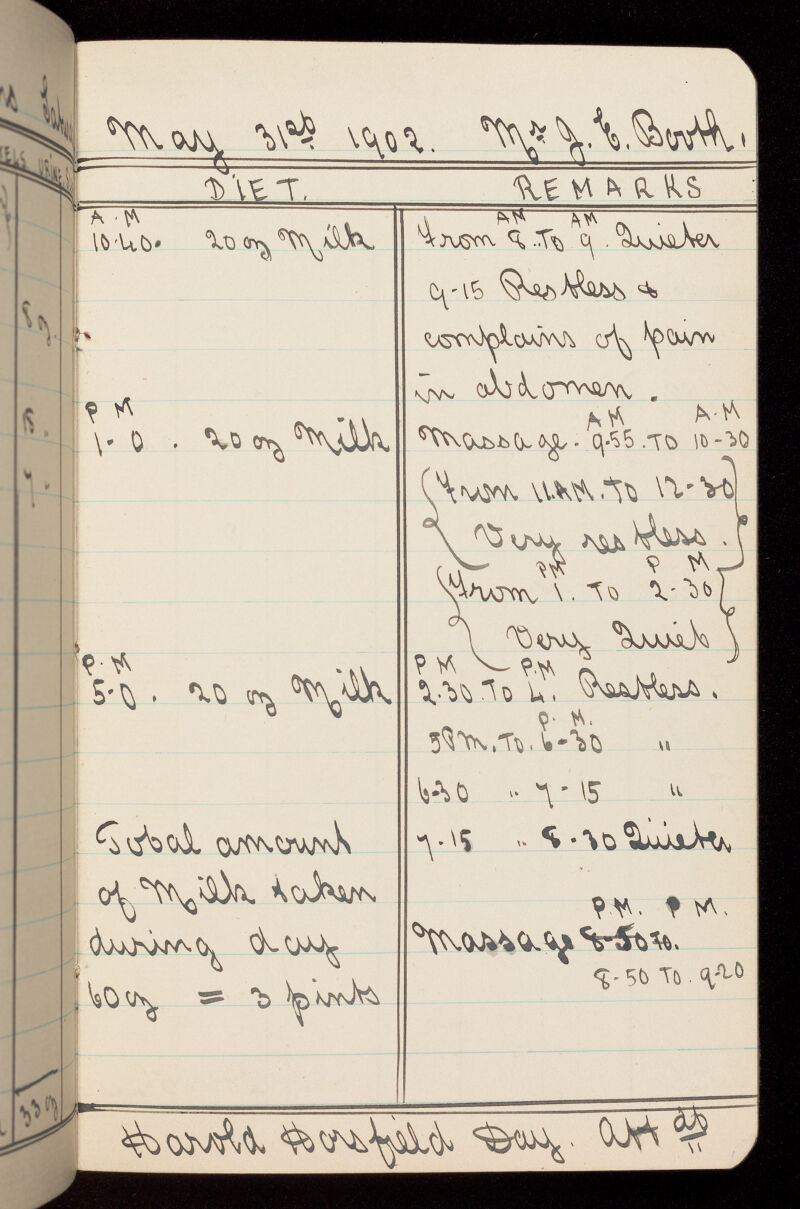 May 31st 1902. Mr J. E. Booth.
DIET. REMARKS
A.M
10.40. 20 oz Milk
P M
1-0. 20 oz Milk
P.M
5-0. 20 oz Milk
Total amount
of Milk taken
during day
60 oz = 3 pints
AM AM
From 8. To 9. Quieter
9-15 Restless &
complains of pain
in abdomen.
A M A.M
Massage. 9-55. TO 10-30
From 11.AM. TO 12-30
Very restless.
PM P M
From 1. TO 2-30
Very Quiet
P M P.M
2.30. TO 4. Restless.
P. M.
5PM. TO. 6-30 "
6-30 " 7-15 "
7-15 " 8-30 Quieter
P.M. P M.
Massage 8-50 TO.
8-50 TO. 9-20
Harold Horsfield Day. Att dt
URINE
8 oz.
7.
33 oz